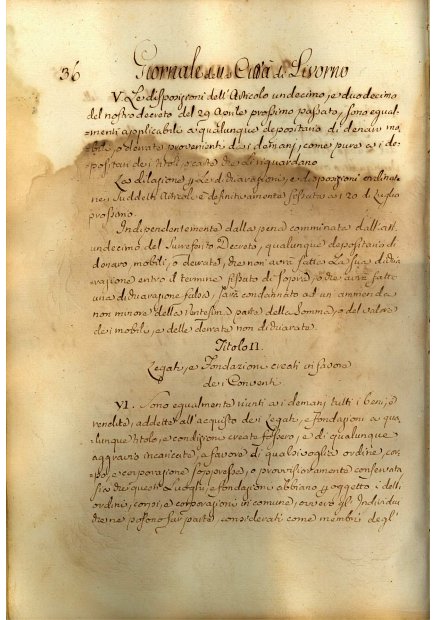 36 Giornale della Città di Livorno
V. Le disposizioni dell'Articolo undecimo, e duodecimo
del nostro decreto del 29 Aprile prossimo passato, sono egual-
menti applicabile a qualunque depositario di denaro mo-
bile, o derrate provenienti dai demanj, come pure a i de-
positarj dei titoli, o carte che li riguardano
La dilazione le dichiarazioni, e disposizioni ordinate
nei suddetti Articoli è definitivamente fissata a i 20 di Luglio
prossimo.
Independentemente dalla pena comminata dall'art.
undecimo del surriferito Decreto, qualunque depositario di
denaro, mobili, o derrate, che non avrà fatta la sua dichia-
razione entro il termine fissato di sopra, o che avrà fatta
una dichiarazione falsa, sarà condannato ad un ammenda
non minore della centesima parte della somma, o del valore
dei mobili, e delle derrate non dichiarate.
Titolo II.
Legati, e Fondazioni creati in favore
dei Conventi.
VI. Sono egualmente riuniti a i demanj tutti i beni, e
rendite, addette all'acquisto dei Legati, e fondazioni a qua-
lunque titolo, e condizione create fossero, e di qualunque
aggravio incaricate, a favore di qualsivoglia ordine, cor-
po, o corporazione soppressa, o provvisoriamente conservata
sia che questi Legati, e fondazioni abbiano oggetto i detti
ordini, corpi, e corporazioni in comune, ovvero gl' Individui
che ne possono far parte considerati come membri degl'